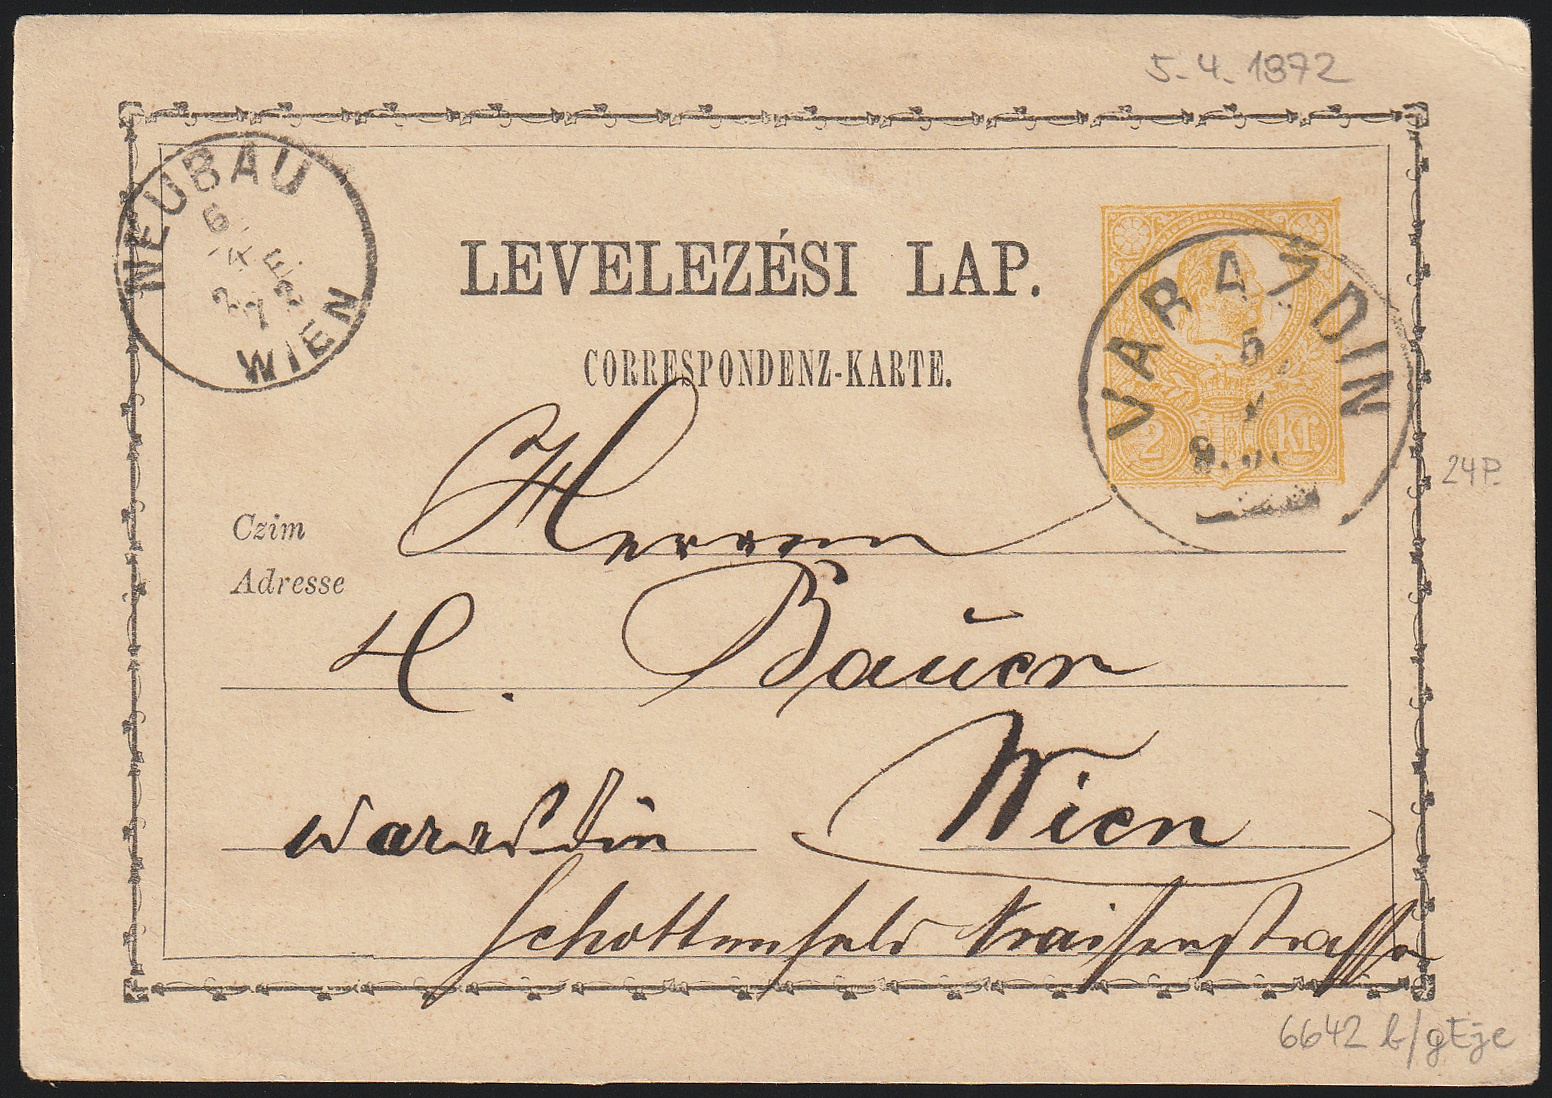 5.4.1872
NEUBAU
6
4
72
WIEN
LEVELEZÉSI LAP.
CORRESPONDENZ-KARTE.
VARAZDIN
5
4
2 kr
24P.
Czim
Adresse
Herrn
H. Bauer
Wien
Warasdin
Schottenfeld Kaiserstrasse
6642 b/gEje